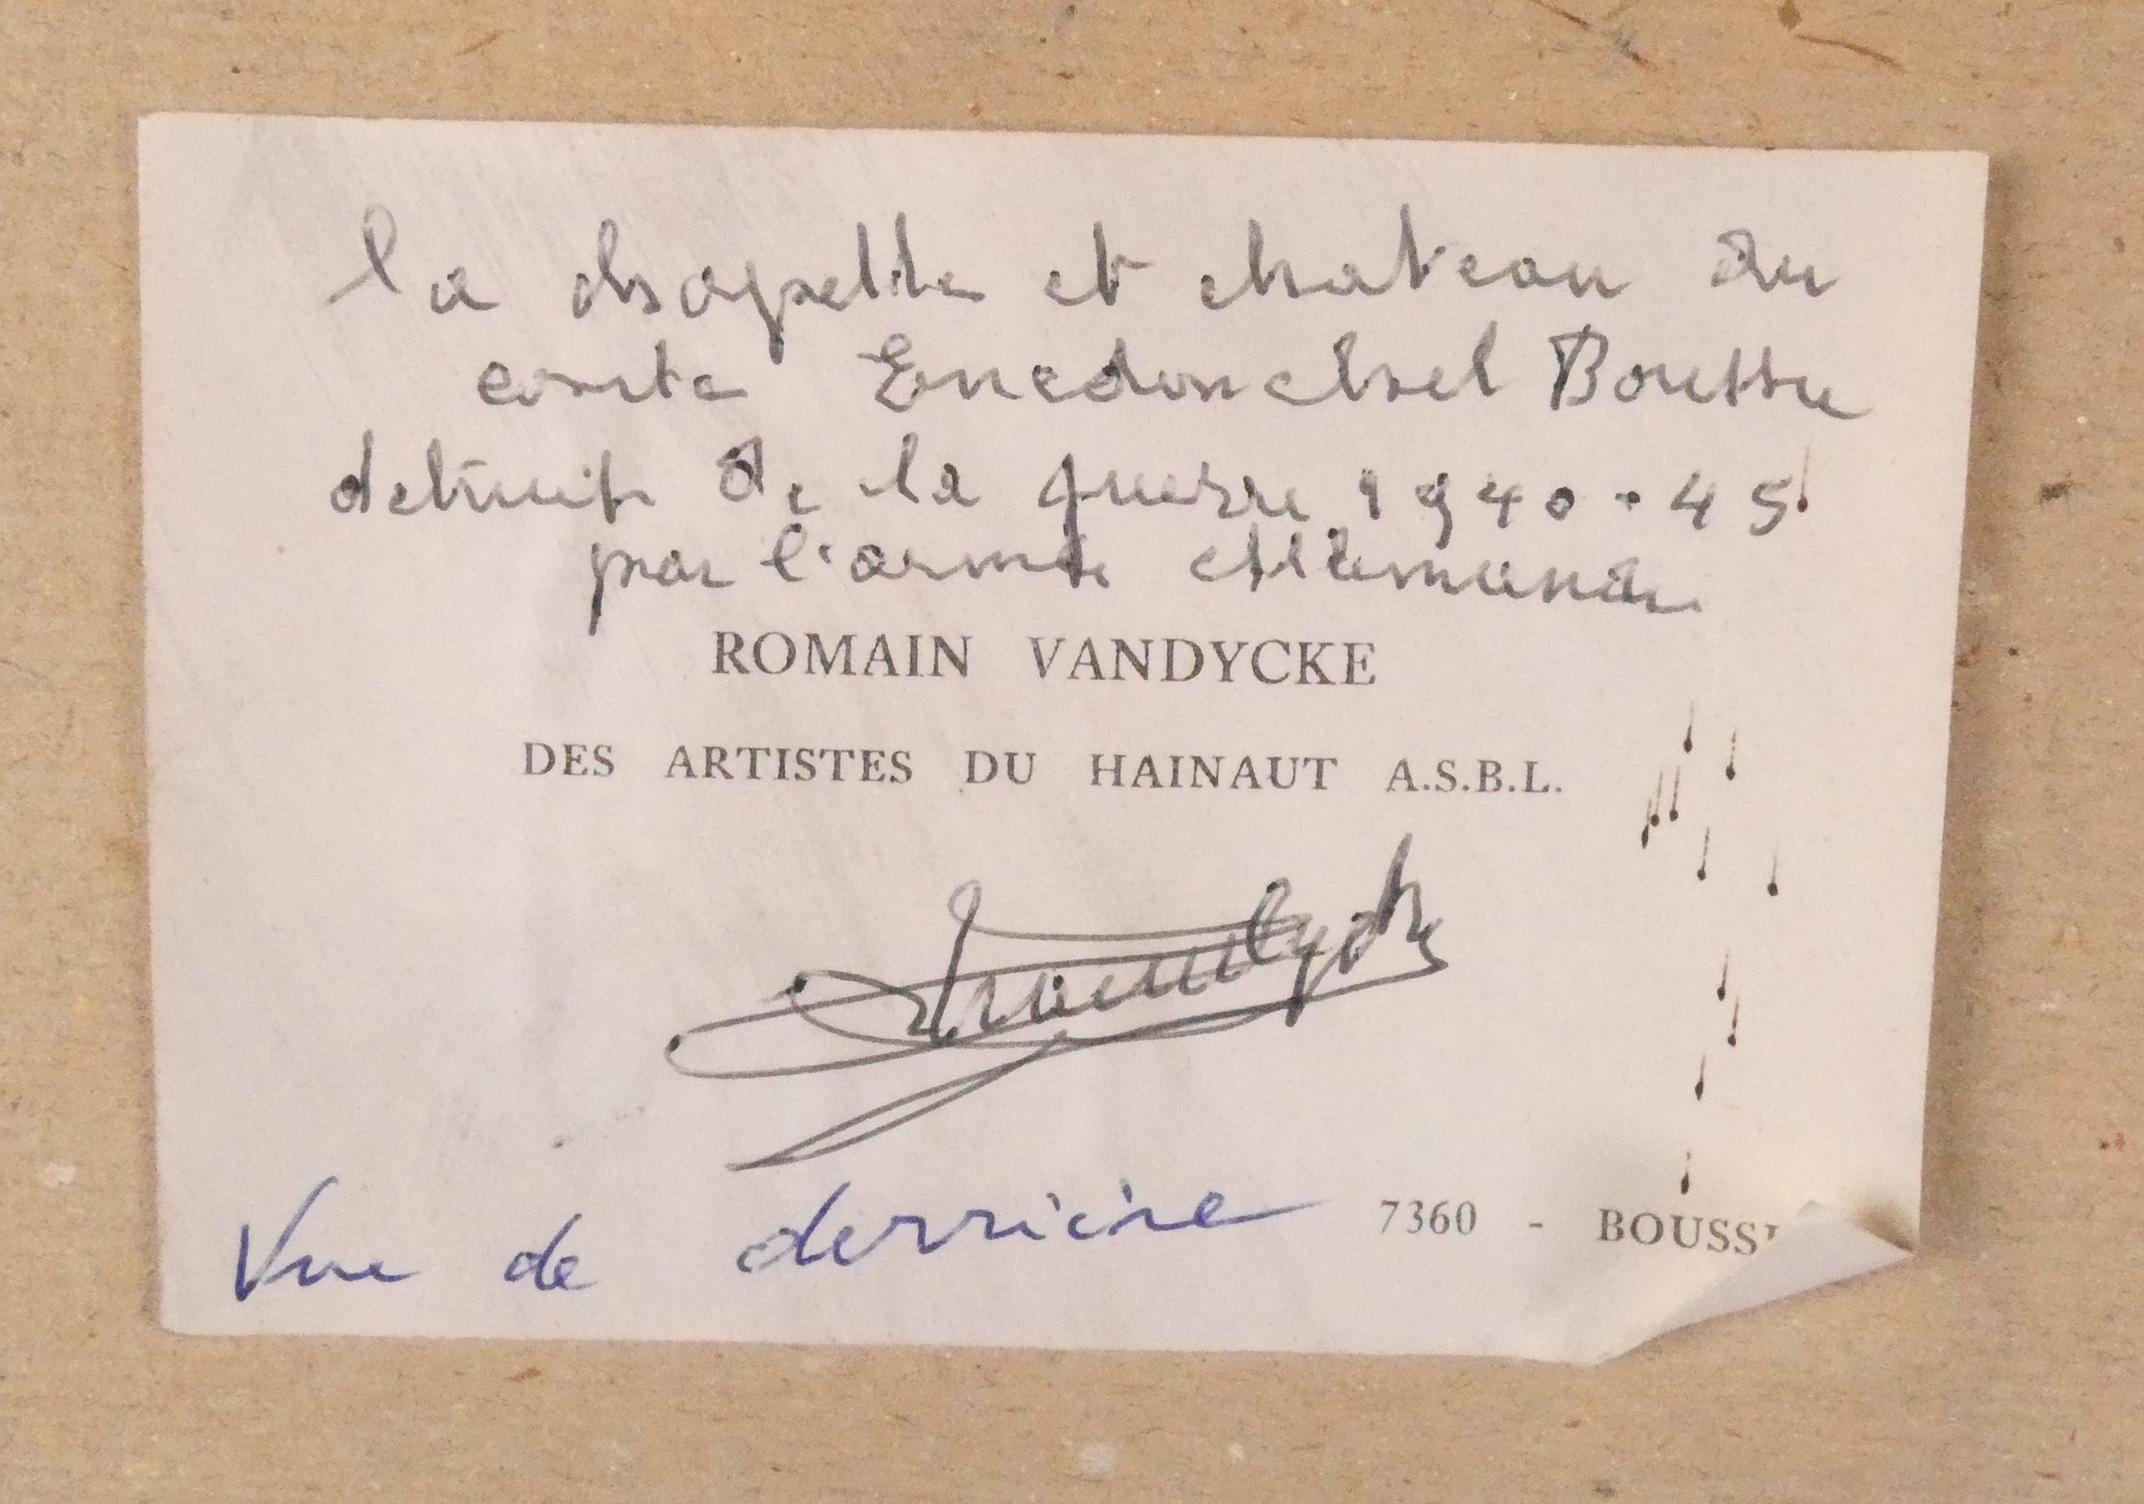 la chapelle et chateau du
comte Enedonchel Boussu
detruit de la guerre 1940-45
par l'armée allemande
ROMAIN VANDYCKE
DES ARTISTES DU HAINAUT A.S.B.L.
Vandycke
Vue de derrière 7360 - BOUSS